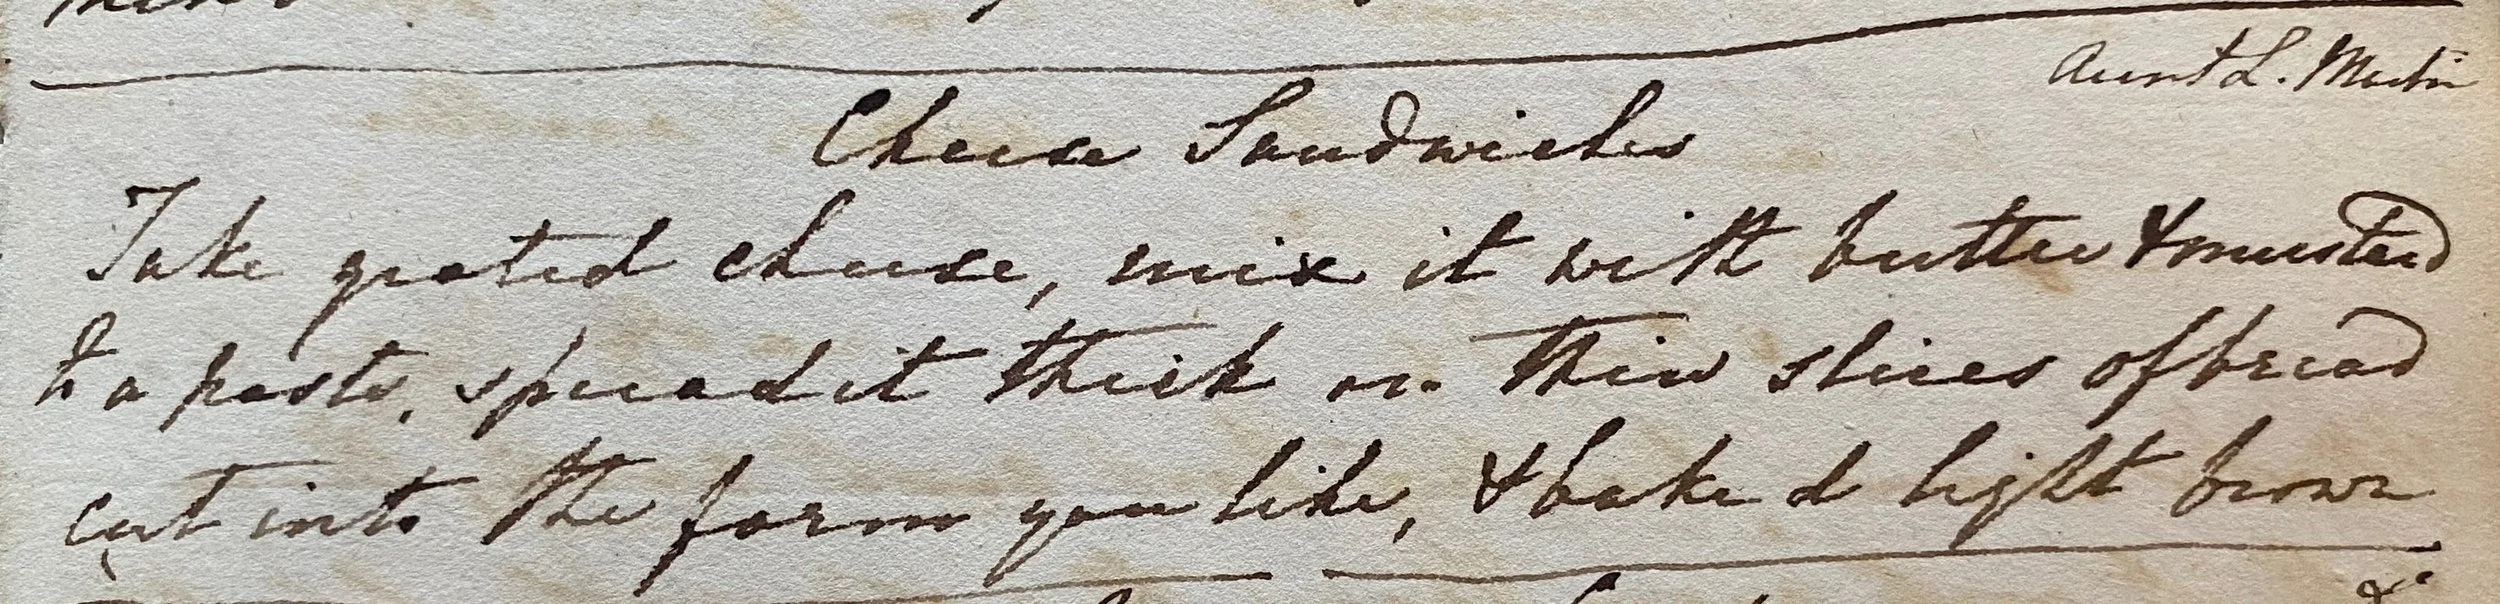 Aunt L. Martin
Cheese Sandwiches
Take grated cheese, mix it with butter & mustard
to a paste, spread it thick on thin slices of bread
cut into the form you like, & baked light brown